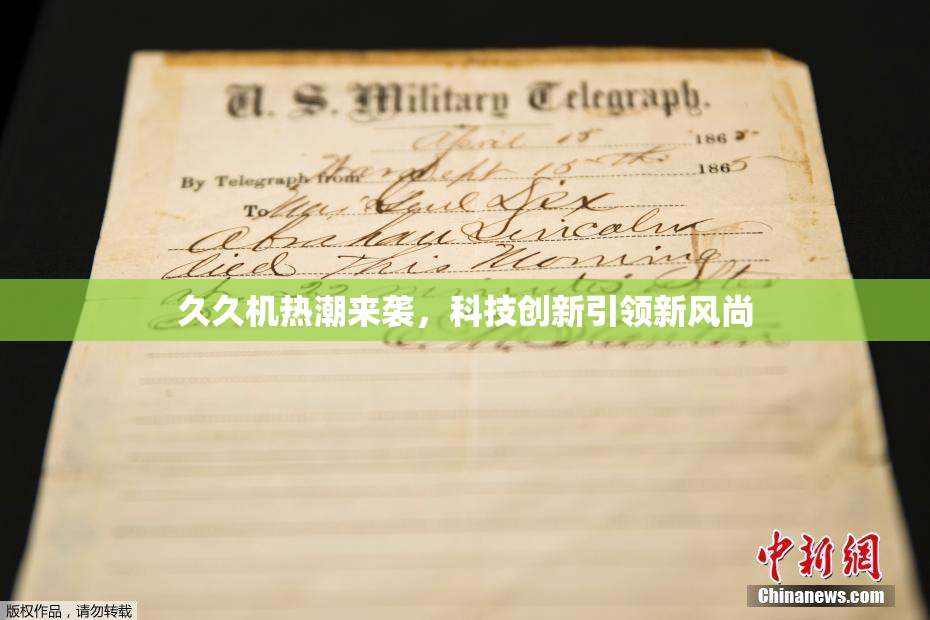 U. S. Military Telegraph.
April 15 1865
By Telegraph from War Dept 15th 1865
To Maj Genl Dix
Abraham Lincoln
died This Morning
at 22 minutes after
久久机热潮来袭，科技创新引领新风尚
E. M. Stanton
中新网
Chinanews.com
版权作品，请勿转载